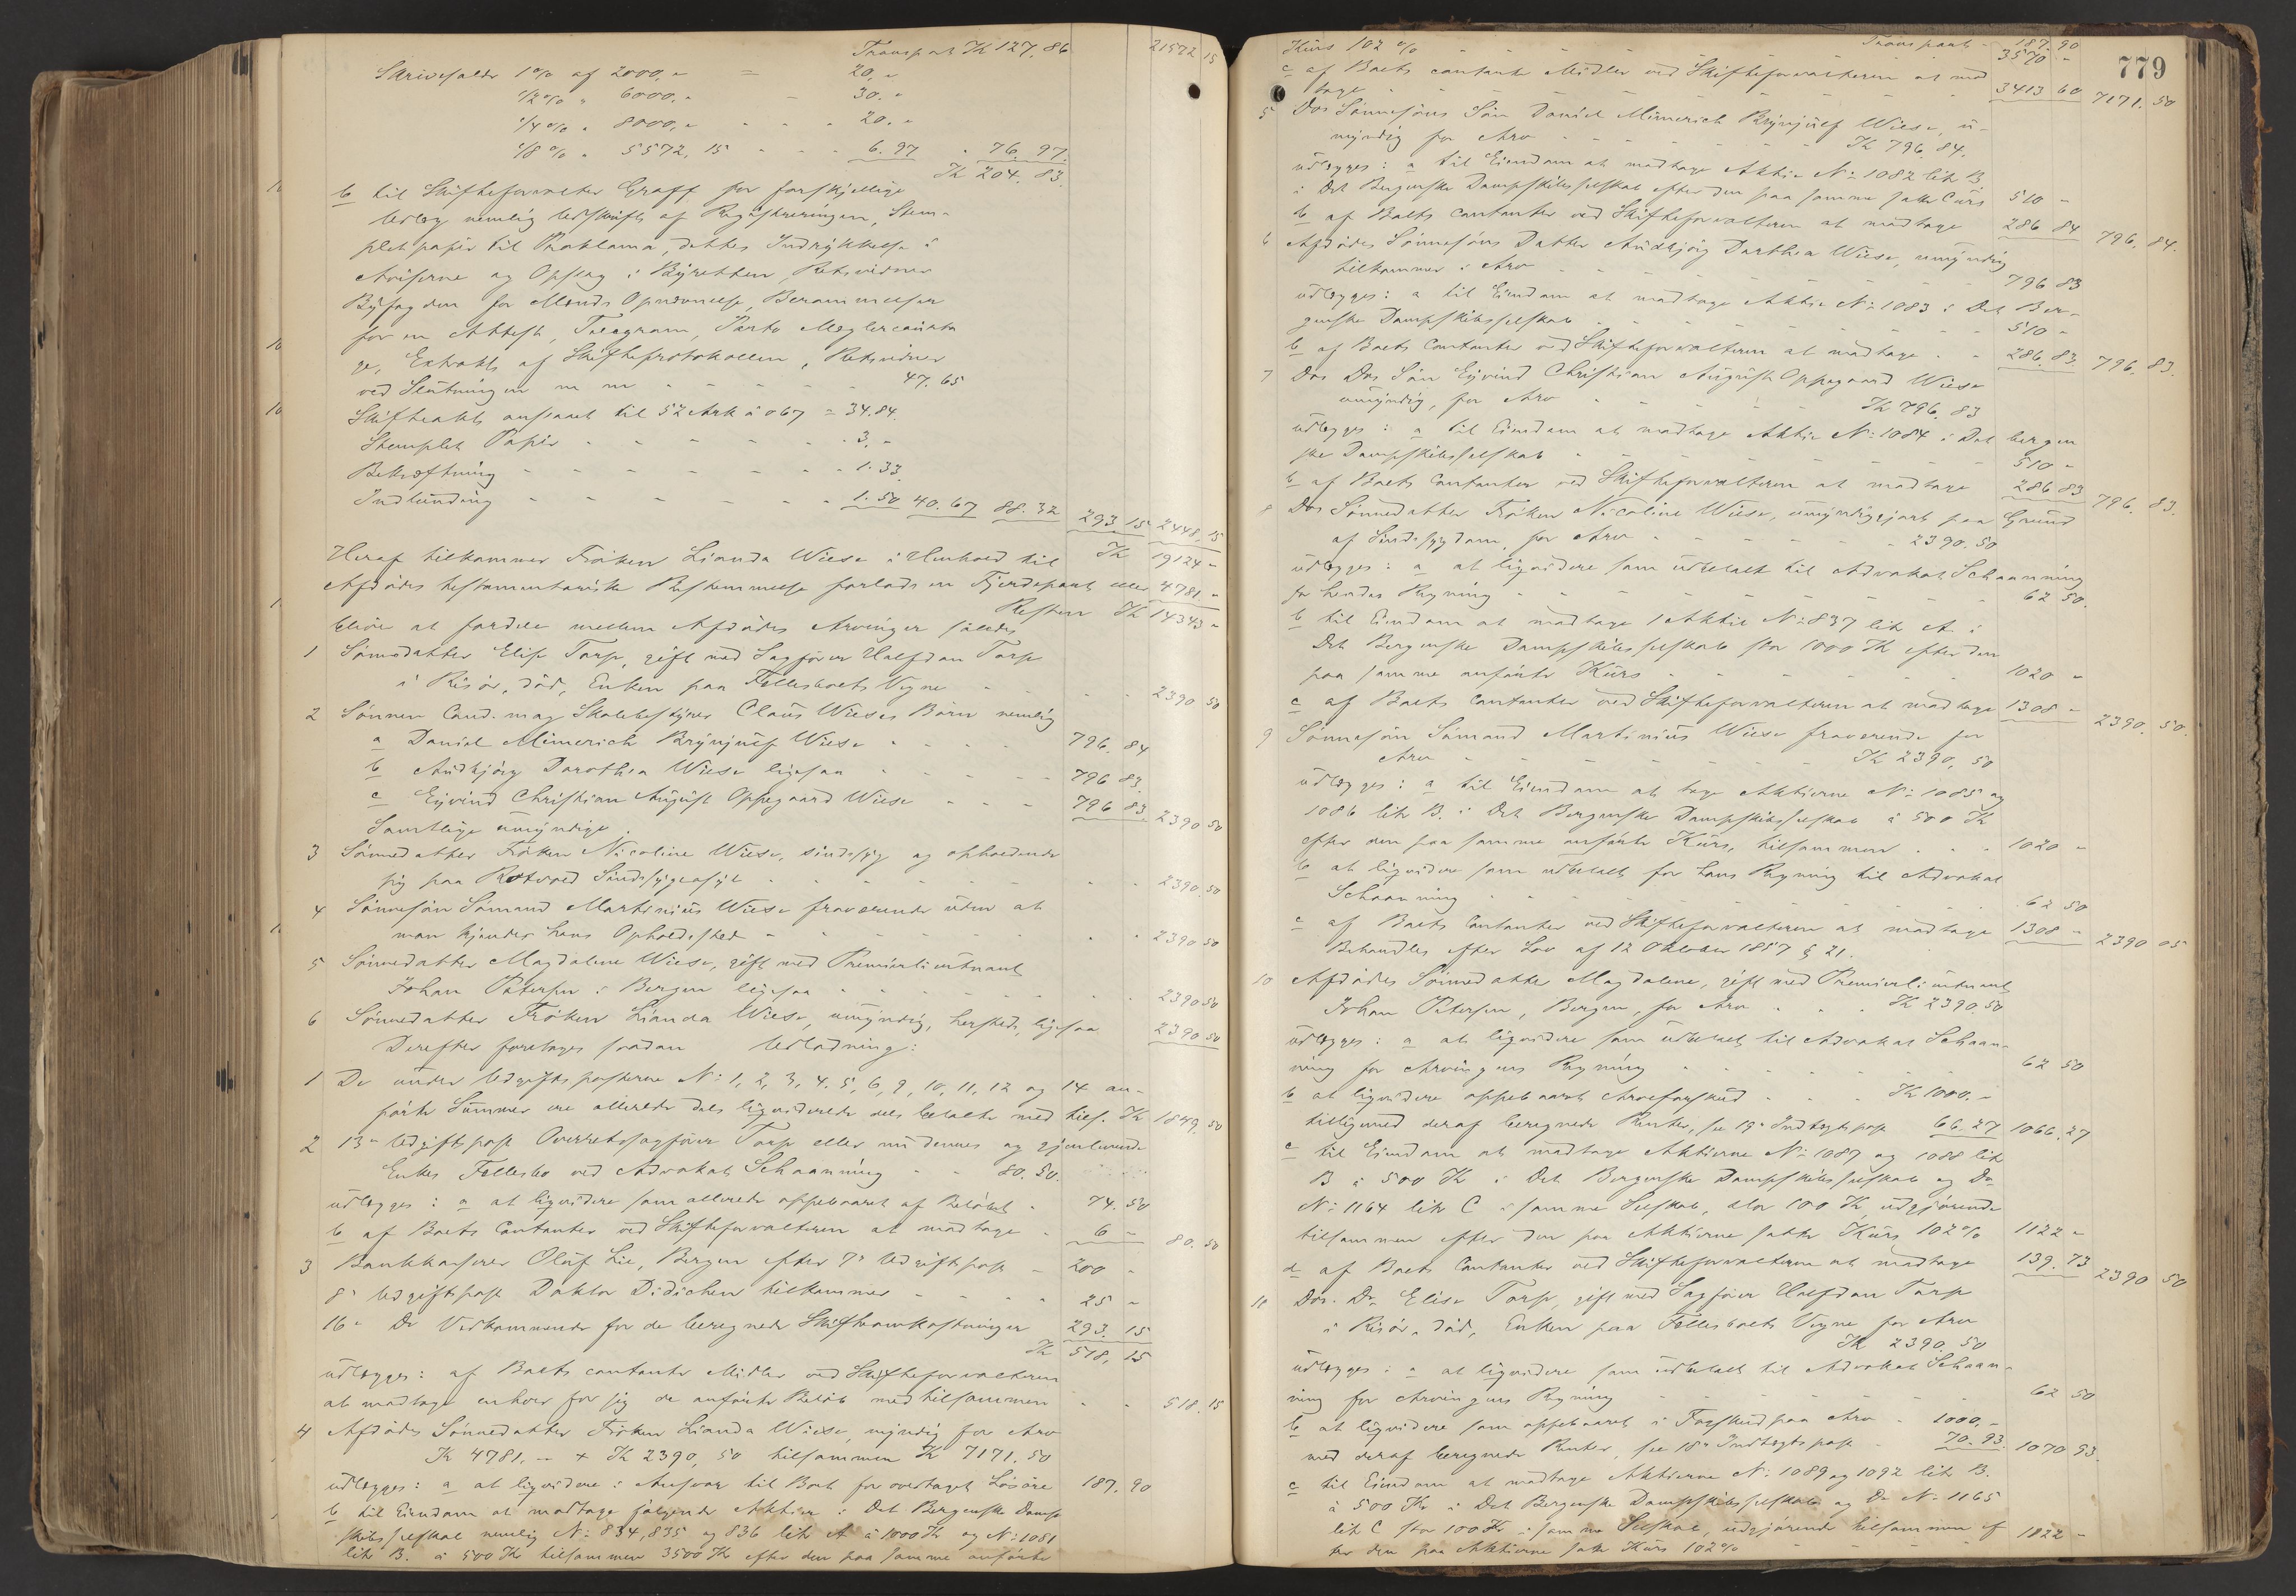 Transport Kr 127.86 21572 15
Skrivesalær 1% af 2000.- = 20.-
1/2% " 6000.- - 30.-
1/4% " 8000.- - - - 20.-
1/8% " 5572,15 - - - 6.97 - 76.97.
Kr 204.83.
b til Skifteforvalter Graff for forskjellige
Udlæg nemlig Udskrift af Registreringen, Stem-
plet papir til Proklama, dettes Indrykkelse i
Aviserne og Opslag i Byretten, Retsvidner
Byfogden for Mænds Opnævnelse, Berammelser
for en Attest, Telegram, Porto Meglercourta
ge, Extrakt af Skifteprotokollen, Retsvidner
ved Slutningen m m - - - - - 47.65
Skifteakt anslaaet til 52 Ark à 067 = 34.84.
Stemplet Papir - - - - - - 3.-
Bekræftning - - - - - - - 1.33
Indbinding - - - - - - - 1.50 40.67 88.32 293 15 2448.15
Heraf tilkommer Frøken Lianda Wiese i Henhold til Kr 19124 -
Afdødes testamentariske Bestemmelse forlods en Fjerdepart eller 4781.-
Resten Kr 14343 -
bliver at fordele mellem Afdødes Arvinger saaledes
1 Sønnedatter Elise Torp, gift med Sagfører Halfdan Torp
i Risør, død, Enken paa Fællesboets Vegne - - - - 2390 50
2 Sønnen Cand. mag Skolebestyrer Claus Wieses Børn nemlig
a Daniel Mimerich Brynjulf Wiese - - - - 796.84
b Audbjørg Dorothea Wiese ligesaa - - - - 796 83.
c Eyvind Christian August Oppegaard Wiese - - - 796 83 2390 50
Samtlige umyndige.
3 Sønnedatter Frøken Nicoline Wiese, sindssyg og opholdende
sig paa Rotvold Sindssygeasyl - - - - - - 2390.50
4 Sønnesøn Sømand Martinius Wiese fraværende uden at
man kjender hans Opholdssted - - - - - 2390 50
5 Sønnedatter Magdalene Wiese, gift med Premierlieutnant
Johan Petersen i Bergen ligesaa - - - - - 2390 50
6 Sønnedatter Frøken Lianda Wiese, myndig, hersteds, ligesaa 2390 50
Derefter foretages saadan Udlodning:
1 De under Udgiftsposterne No: 1, 2, 3, 4, 5, 6, 9, 10, 11, 12 og 14 an-
førte Summer ere allerede dels liquiderede dels betalte med tils. Kr 1849.50
2 13de Udgiftspost Overretssagfører Torp eller nu dennes og gjenlevende
Enkes Fællesbo ved Advokat Schaanning - - 80.50.
udlægges: a at liquidere som allerede oppebaaret af Beløbet - 74.50
b af Boets Contanter ved Skifteforvalteren at modtage - 6 - 80.50
3 Bankkasserer Oluf Lie, Bergen efter 7de Udgiftspost - 200 -
8de Udgiftspost Doktor Didichen tilkommer - - - - 25 -
16de Do Vedkommende for de beregnede Skifteomkostninger 293.15
Kr 518,15
udlægges: af Boets contante Midler ved Skifteforvalteren
at modtage enhver for sig de anførte Beløb med tilsammen - - 518.15
4 Afdødes Sønnedatter Frøken Lianda Wiese, myndig for Arv
Kr 4781.-- + Kr 2390,50 tilsammen Kr 7171.50
udlægges: a at liquidere i Ansvar til Boet for overtaget Løsøre 187.90
b til Eiendom at modtage følgende Aktier i Det Bergenske Damp
skibsselskab nemlig No: 834, 835 og 836 litr A à 1000 Kr og No: 1081
litr B. à 500 Kr tilsammen 3500 Kr efter den paa samme anførte
779
Transport - 187.90
Kurs 102% - - - - - - 3570 -
c af Boets contante Midler ved Skifteforvalteren at mod
tage - - - - - - - - 3413 60 7171.50
5 Dos Sønnesøns Søn Daniel Mimerich Brynjulf Wiese, u-
myndig for Arv - - - - - Kr 796.84.
udlægges: a til Eiendom at modtage Aktie No: 1082 litr B
i Det Bergenske Dampskibsselskab efter den paa samme satte Curs 510 -
b af Boets Contanter ved Skifteforvalteren at modtage 286 84 796.84.
6 Afdødes Sønnesøns Datter Audbjørg Dorthea Wiese, umyndig
tilkommer i Arv - - - - - - 796 83
udlægges: a til Eiendom at modtage Aktie No: 1083 i Det Ber-
genske Dampskibsselskab - - - - - - 510 -
b af Boets Contanter ved Skifteforvalteren at modtage - - 286.83. 796.83.
7 Dos Dos Søn Eyvind Christian August Oppegaard Wiese
umyndig, for Arv - - - - Kr 796.83
udlægges: a til Eiendom at modtage Aktie No: 1084 i Det bergen
ske Dampskibsselskab - - - - - - 510 -
b af Boets Contanter ved Skifteforvalteren at modtage 286 83 796.83.
8 Dos Sønnedatter Frøken Nicoline Wiese, umyndiggjort paa Grund
af Sindssygdom, for Arv - - - - - 2390.50
udlægges: a at liquidere som udbetalt til Advokat Schaanning
for hendes Regning - - - - - - - 62 50.
b til Eiendom at modtage 1 Aktie No: 837 litr A i
Det Bergenske Dampskibsselskab stor 1000 Kr efter den
paa samme anførte Kurs - - - - - - 1020 -
c af Boets Contanter ved Skifteforvalteren at modtage 1308 - 2390.50.
9 Sønnesøn Sømand Martinius Wiese fraværende for
Arv - - - - - - - Kr 2390,50
udlægges: a til Eiendom at tage Aktierne No: 1085 og
1086 litr B. i Det Bergenske Dampskibsselskab à 500 Kr
efter den paa samme anførte Kurs, tilsammen - - - 1020 -
b at liquidere som udbetalt for hans Regning til Advokat
Schaanning - - - - - - - - 62 50
c af Boets Contanter ved Skifteforvalteren at modtage 1308 - 2390 05
Behandles efter Lov af 12 Oktober 1857 § 21.
10 Afdødes Sønnedatter Magdalene, gift med Premierlieutnant
Johan Petersen, Bergen, for Arv - - - Kr 2390.50
udlægges: a at liquidere som udbetalt til Advokat Schaan-
ning for Arvingens Regning - - - - - - 62 50
b at liquidere oppebaaret Arveforskud - - - Kr 1000.-
tilligemed deraf beregnede Renter, see 19de Indtægtspost 66.27 1066.27
c til Eiendom at modtage Aktierne No: 1087 og 1088 litr
B à 500 Kr i Det Bergenske Dampskibsselskab og Do
No: 1164 litr C i samme Selskab, stor 100 Kr udgjørende
tilsammen efter den paa Aktierne satte Kurs 102% 1122 -
d af Boets Contanter ved Skifteforvalteren at modtage 139.73 2390 50
11 Dos. Do Elise Torp, gift med Sagfører Halfdan Torp
i Risør, død, Enken paa Fællesboets Vegne for Arv
Kr 2390.50
udlægges: a at liquidere som udbetalt til Advokat Schaan-
ning for Arvingens Regning - - - - - - 62 50
b at liquidere som oppebaaret i Forskud paa Arv - 1000.-
med deraf beregnede Renter, see 18de Indtægtspost - 70.93. 1070 93.
c til Eiendom at modtage Aktierne No: 1089 og 1092 litr B.
à 500 Kr i Det Bergenske Dampskibsselskab og Do No: 1165
litr C stor 100 Kr i samme Selskab, udgjørende tilsammen ef
ter den paa Aktierne satte Kurs 102% - - - 1122 -